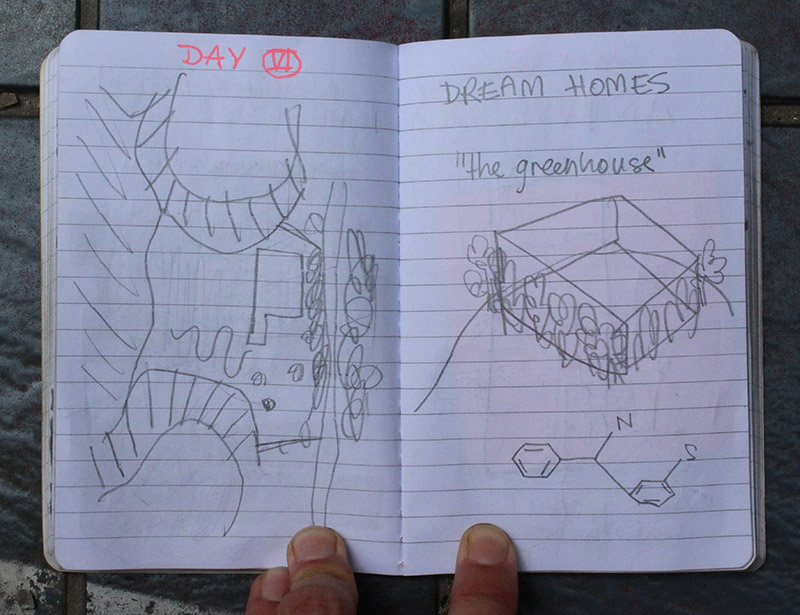 DAY VI
DREAM HOMES
"the greenhouse"
N
S